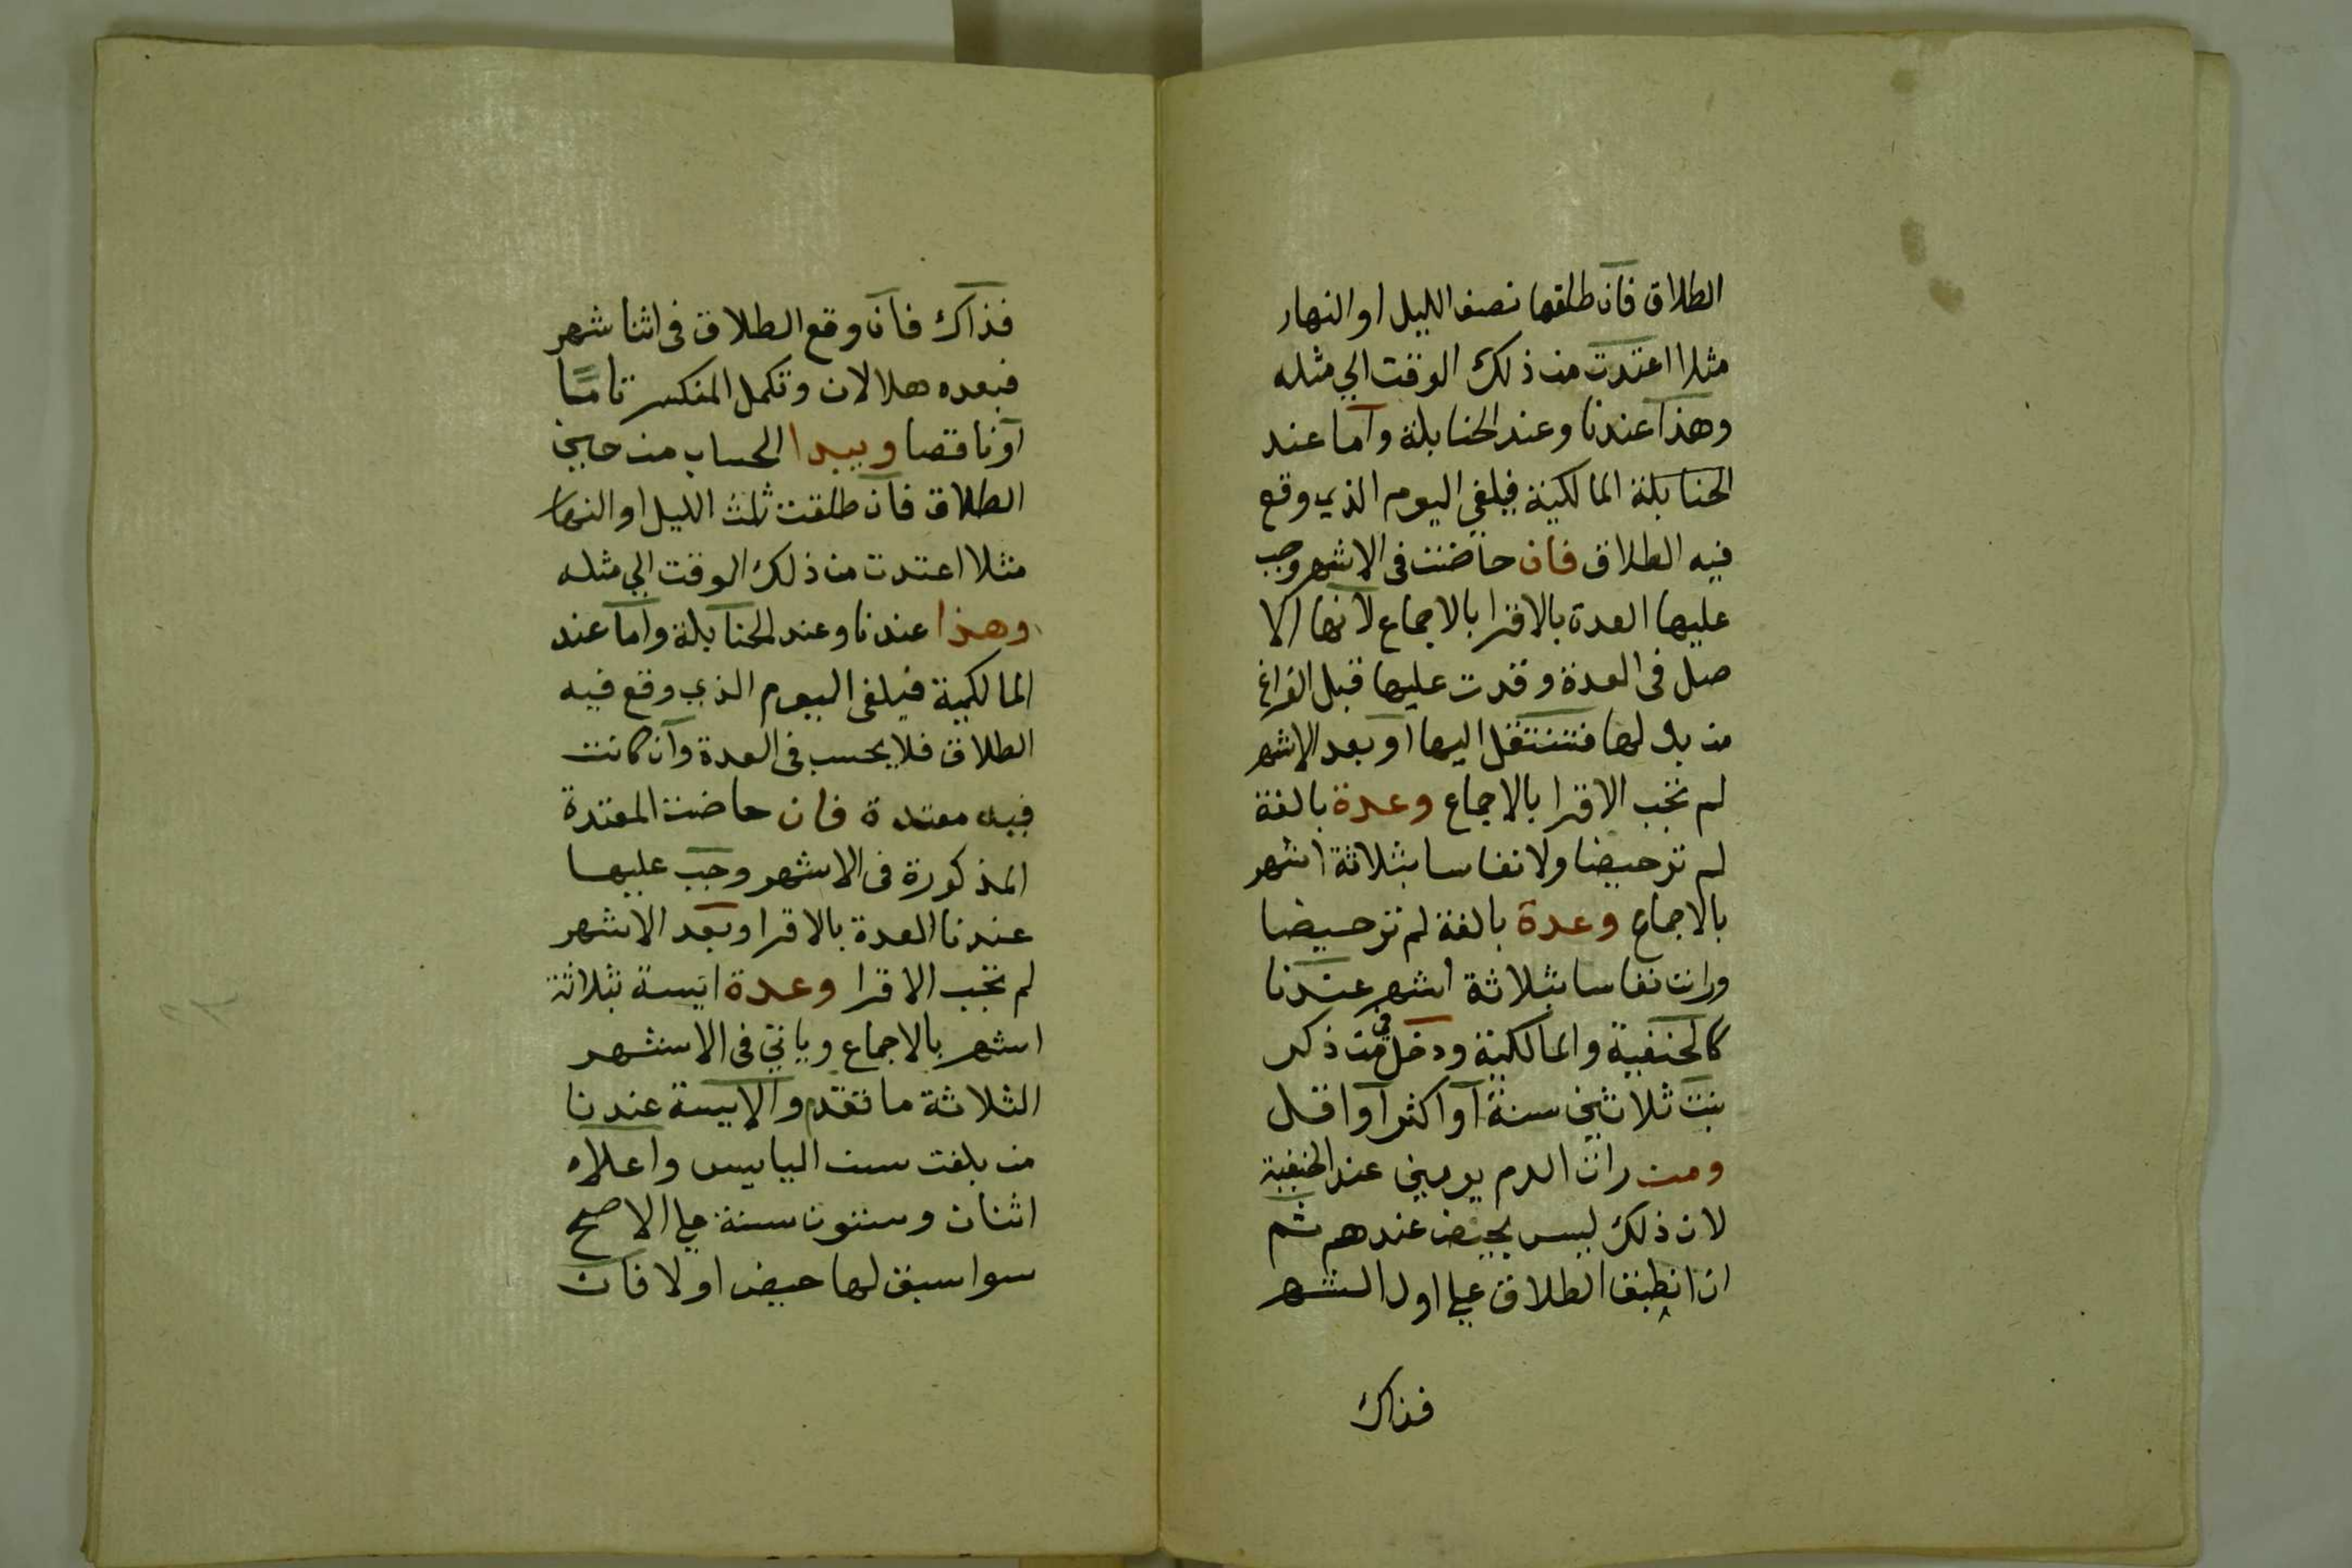 الطلاق فان طلقها نصف الليل او النهار
مثلا اعتدت من ذلك الوقت الي مثله
وهذا عندنا وعند الحنابلة واما عند
الحنابلة المالكية فيلغي اليوم الذي وقع
فيه الطلاق فان حاضت في الاشهر وجب
عليها العدة بالاقرا بالاجماع لانها الا
صل في العدة وقدرت عليها قبل الفراغ
من بدلها فتنتقل اليها او بعد الاشهر
لم تجب الاقرا بالاجماع وعدة بالغة
لم تر حيضا ولا نفاسا بثلاثة اشهر
بالاجماع وعدة بالغة لم تر حيضا
ورات نفاسا بثلاثة اشهر عندنا
كالحنفية والمالكية ودخل في من ذكر
بنت ثلاثين سنة او اكثر او اقل
ومن رات الدم يومين عند الحنفية
لان ذلك ليس بحيض عندهم ثم
ان انطبق الطلاق علي اول الشهر
فذاك
فذاك فان وقع الطلاق في اثنا شهر
فبعده هلالان وتكمل المنكسر تاما
او ناقصا ويبدا الحساب من حين
الطلاق فان طلقت ثلث الليل او النهار
مثلا اعتدت من ذلك الوقت الي مثله
وهذا عندنا وعند الحنابلة واما عند
المالكية فيلغي اليوم الذي وقع فيه
الطلاق فلا يحسب في العدة وان كانت
فيه معتدة فان حاضت المعتدة
المذكورة في الاشهر وجب عليها
عندنا العدة بالاقرا وبعد الاشهر
لم تجب الاقرا وعدة ايسة بثلاثة
اشهر بالاجماع وياتي في الاشهر
الثلاثة ما تقدم والايسة عندنا
من بلغت سن الياييس واعلاه
اثنان وستون سنة علي الاصح
سوا سبق لها حيض او لا فان